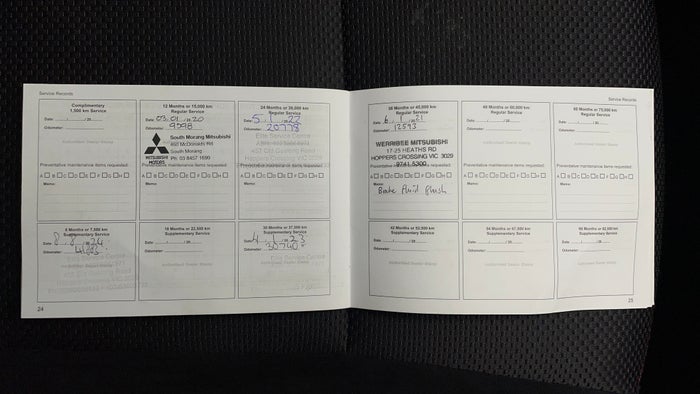 Service Records
Complimentary
1,500 km Service
Date / / 20
Odometer
Authorised Dealer Stamp
Preventative maintenance items requested:
A B C D E F G H
Memo:
12 Months or 15,000 km
Regular Service
Date 03, 01, 20 20
Odometer 9598
MITSUBISHI
MOTORS
South Morang Mitsubishi
South Morang
Preventative maintenance items requested:
A B C D E F G H
Memo:
24 Months or 30,000 km
Regular Service
Date 5, 1, 20 22
Odometer 20778
Elite Service Centre
Preventative maintenance items requested:
A B C D E F G H
Memo:
Supplementary Service
Date 8, 8, 24
Odometer
Authorised Dealer Stamp
18 Months or 22,500 km
Supplementary Service
Date / / 20
Odometer
Authorised Dealer Stamp
30 Months or 37,500 km
Supplementary Service
Date 4, 1, 23
Odometer 30740
Elite Service Centre
24
Service Records
36 Months or 45,000 km
Regular Service
Date 6, 1, 21
Odometer 12593
WERRIBEE MITSUBISHI
17-25 HEATHS RD
HOPPERS CROSSING VIC 3029
9741 5300
Preventative maintenance items requested:
A B C D E F G H
Memo:
Brake fluid flush
48 Months or 60,000 km
Regular Service
Date / / 20
Odometer
Authorised Dealer Stamp
Preventative maintenance items requested:
A B C D E F G H
Memo:
60 Months or 75,000 km
Regular Service
Date / / 20
Odometer
Authorised Dealer Stamp
Preventative maintenance items requested:
A B C D E F G H
Memo:
42 Months or 52,500 km
Supplementary Service
Date / / 20
Odometer
Authorised Dealer Stamp
54 Months or 67,500 km
Supplementary Service
Date / / 20
Odometer
Authorised Dealer Stamp
Supplementary Service
Date / / 20
Odometer
Authorised Dealer Stamp
25